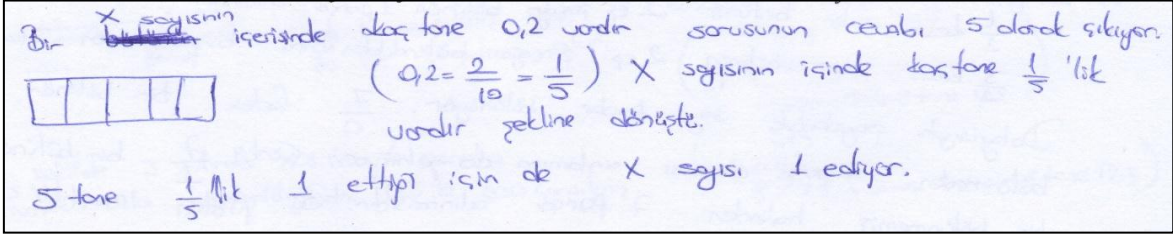 Bir x sayısının içerisinde kaç tane 0,2 vardır sorusunun cevabı 5 olarak çıkıyor.
( 0,2 = 2/10 = 1/5 ) X sayısının içinde kaç tane 1/5 'lik
vardır şekline dönüştü.
5 tane 1/5 'lik 1 ettiği için de X sayısı 1 ediyor.